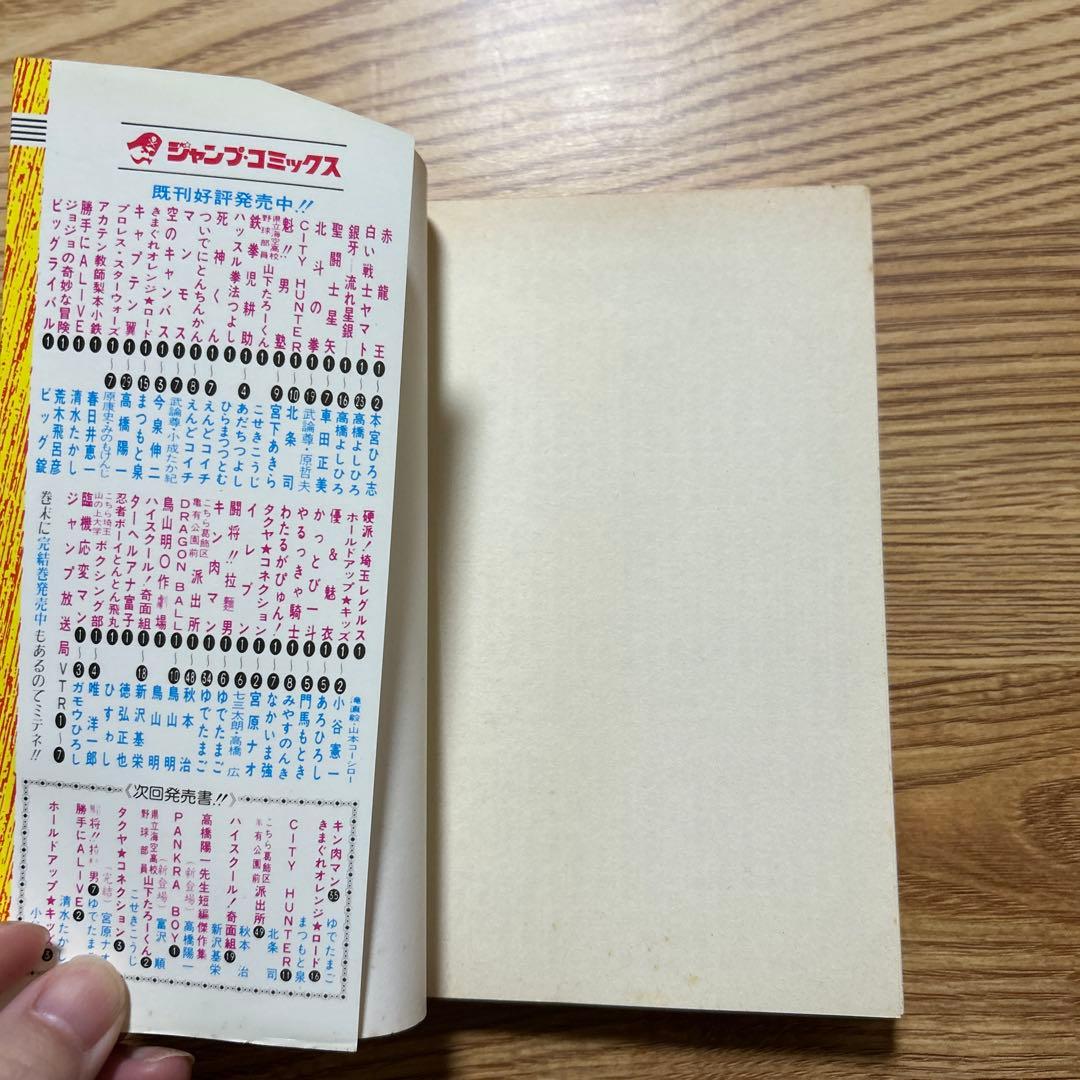 ジャンプ・コミックス
既刊好評発売中!!
赤龍王❶〜❷本宮ひろ志
白い戦士ヤマト❶〜㉓高橋よしひろ
銀牙―流れ星銀―❶〜⓰高橋よしひろ
聖闘士星矢❶〜❼車田正美
北斗の拳❶〜⓳武論尊・原哲夫
CITY HUNTER❶〜❿北条司
魁!!男塾❶〜❾宮下あきら
県立海空高校野球部員山下たろーくん❶こせきこうじ
鉄拳児耕助❶〜❹あだちつよし
ハッスル拳法つよし❶ひらまつつとむ
死神くん❶〜❼えんどコイチ
ついでにとんちんかん❶〜❽えんどコイチ
マンモス❶〜❼武論尊・小成たか紀
空のキャンバス❶〜❸今泉伸二
きまぐれオレンジ★ロード❶〜⓯まつもと泉
キャプテン翼❶〜㉙高橋陽一
プロレス・スターウォーズ❶〜❼原康史・みのもけんじ
アカテン教師梨本小鉄❶春日井恵一
勝手にALIVE❶清水たかし
ジョジョの奇妙な冒険❶荒木飛呂彦
ビッグライバル❶ビッグ錠
硬派!埼玉レグルス❶滝直毅・山本コーシロー
ホールドアップ★キッズ❶〜❷小谷憲一
優&魅衣❶〜❺あろひろし
かっとび一斗❶〜❺門馬もとき
やるっきゃ騎士❶〜❽みやすのんき
わたるがぴゅん!❶〜❼なかいま強
タクヤ★コネクション❶〜❷宮原ナオ
イレブン❶〜❻七三太朗・高橋広
闘将!!拉麵男❶〜❻ゆでたまご
キン肉マン❶〜㉞ゆでたまご
こちら葛飾区亀有公園前派出所❶〜㊽秋本治
DRAGON BALL❶〜❿鳥山明
鳥山明〇作劇場❶鳥山明
ハイスクール!奇面組❶〜⓲新沢基栄
ターヘルアナ富子❶徳弘正也
忍者ボーイとんとん飛丸❶ひすわし
こちら埼玉山の上大学ボクシング部❶〜❹唯洋一郎
臨機応変マン❶〜❸ガモウひろし
ジャンプ放送局VTR1〜7
巻末に完結巻発売中もあるのでミテネ!!
《次回発売書!!》
キン肉マン㉟ゆでたまご
きまぐれオレンジ★ロード⓰まつもと泉
CITY HUNTER⓫北条司
こちら葛飾区亀有公園前派出所㊾秋本治
ハイスクール!奇面組⓳新沢基栄
高橋陽一先生短編傑作集(新登場)高橋陽一
PANKRA BOY❶(新登場)富沢順
県立海空高校野球部員山下たろーくん❷こせきこうじ
タクヤ★コネクション❸(完結)宮原ナオ
闘将!!拉麵男❼ゆでたまご
勝手にALIVE❷清水たかし
ホールドアップ★キッズ❸小